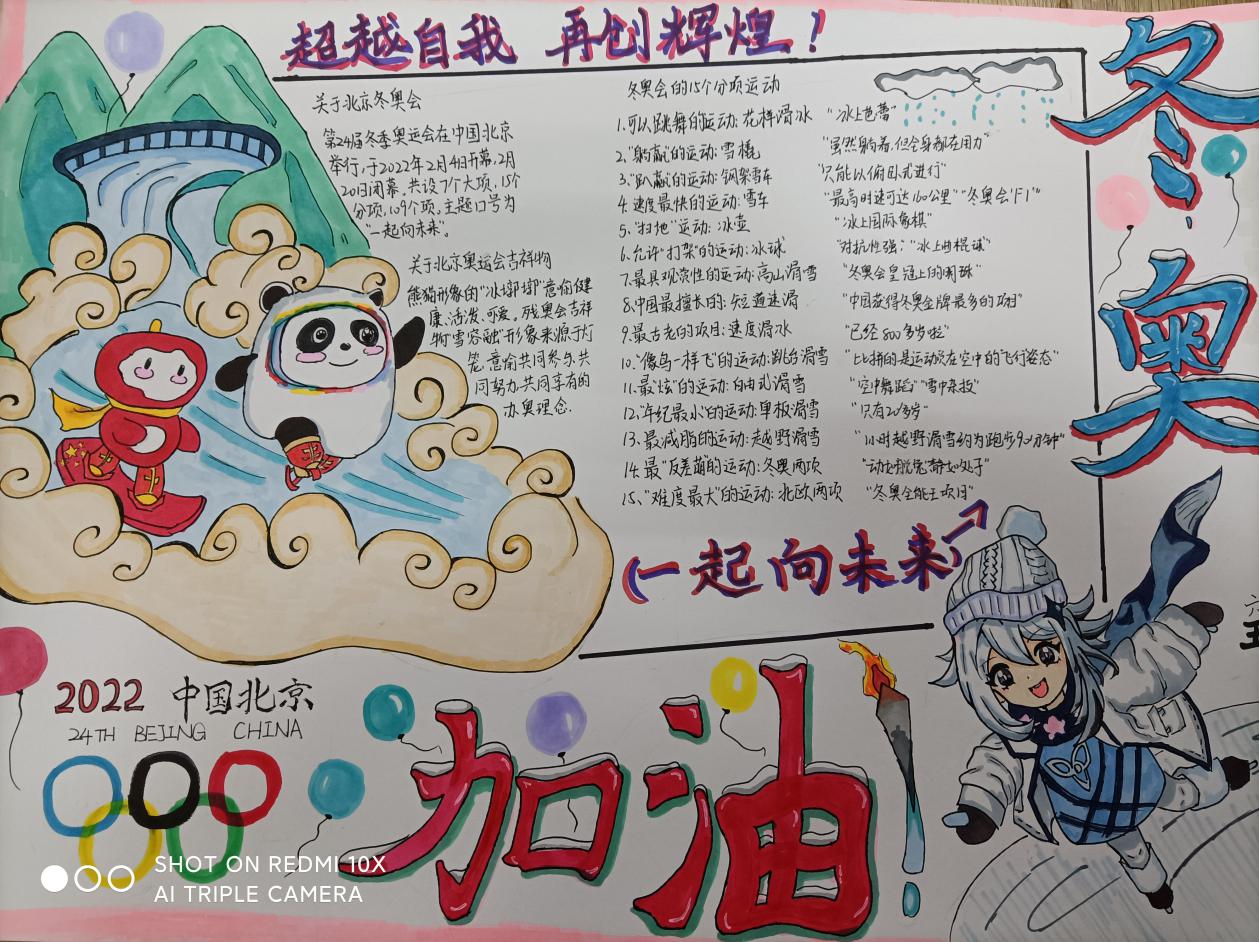 超越自我 再创辉煌！
冬奥
关于北京冬奥会
第24届冬季奥运会在中国北京
举行,于2022年2月4日开幕,2月
20日闭幕,共设7个大项,15个
分项,109个项,主题口号为
"一起向未来"。
关于北京奥运会吉祥物
熊猫形象的"冰墩墩"意俞健
康、活泼、可爱。残奥会吉祥
物"雪容融"形象来源于灯
笼,意俞共同参与、共
同努力、共同享有的
办奥理念.
冬奥会的15个分项运动
1.可以跳舞的运动:花样滑冰 "冰上芭蕾"
2."躺赢"的运动:雪橇 "虽然躺着,但全身都在用力"
3."趴赢"的运动:钢架雪车 "只能以俯卧式进行"
4.速度最快的运动:雪车 "最高时速可达160公里""冬奥会F1"
5."扫地"运动:冰壶 "冰上国际象棋"
6.允许"打架"的运动:冰球 对抗性强:"冰上曲棍球"
7.最具观赏性的运动:高山滑雪 "冬奥会皇冠上的明珠"
8.中国最擅长的:短道速滑 "中国获得冬奥金牌最多的项目"
9.最古老的项目:速度滑冰 "已经800多岁啦"
10."像鸟一样飞"的运动:跳台滑雪 "比拼的是运动员在空中的飞行姿态"
11.最"炫"的运动:自由式滑雪 "空中舞蹈""雪中杂技"
12."年纪最小"的运动:单板滑雪 "只有20多岁"
13.最减脂的运动:越野滑雪 "1小时越野滑雪约为跑步90分钟"
14.最"反差萌"的运动:冬奥两项 "动如脱兔静如处子"
15."难度最大"的运动:北欧两项 "冬奥全能王项目"
(一起向未来)
2022 中国北京
24TH BEJING CHINA
加油
SHOT ON REDMI 10X
AI TRIPLE CAMERA